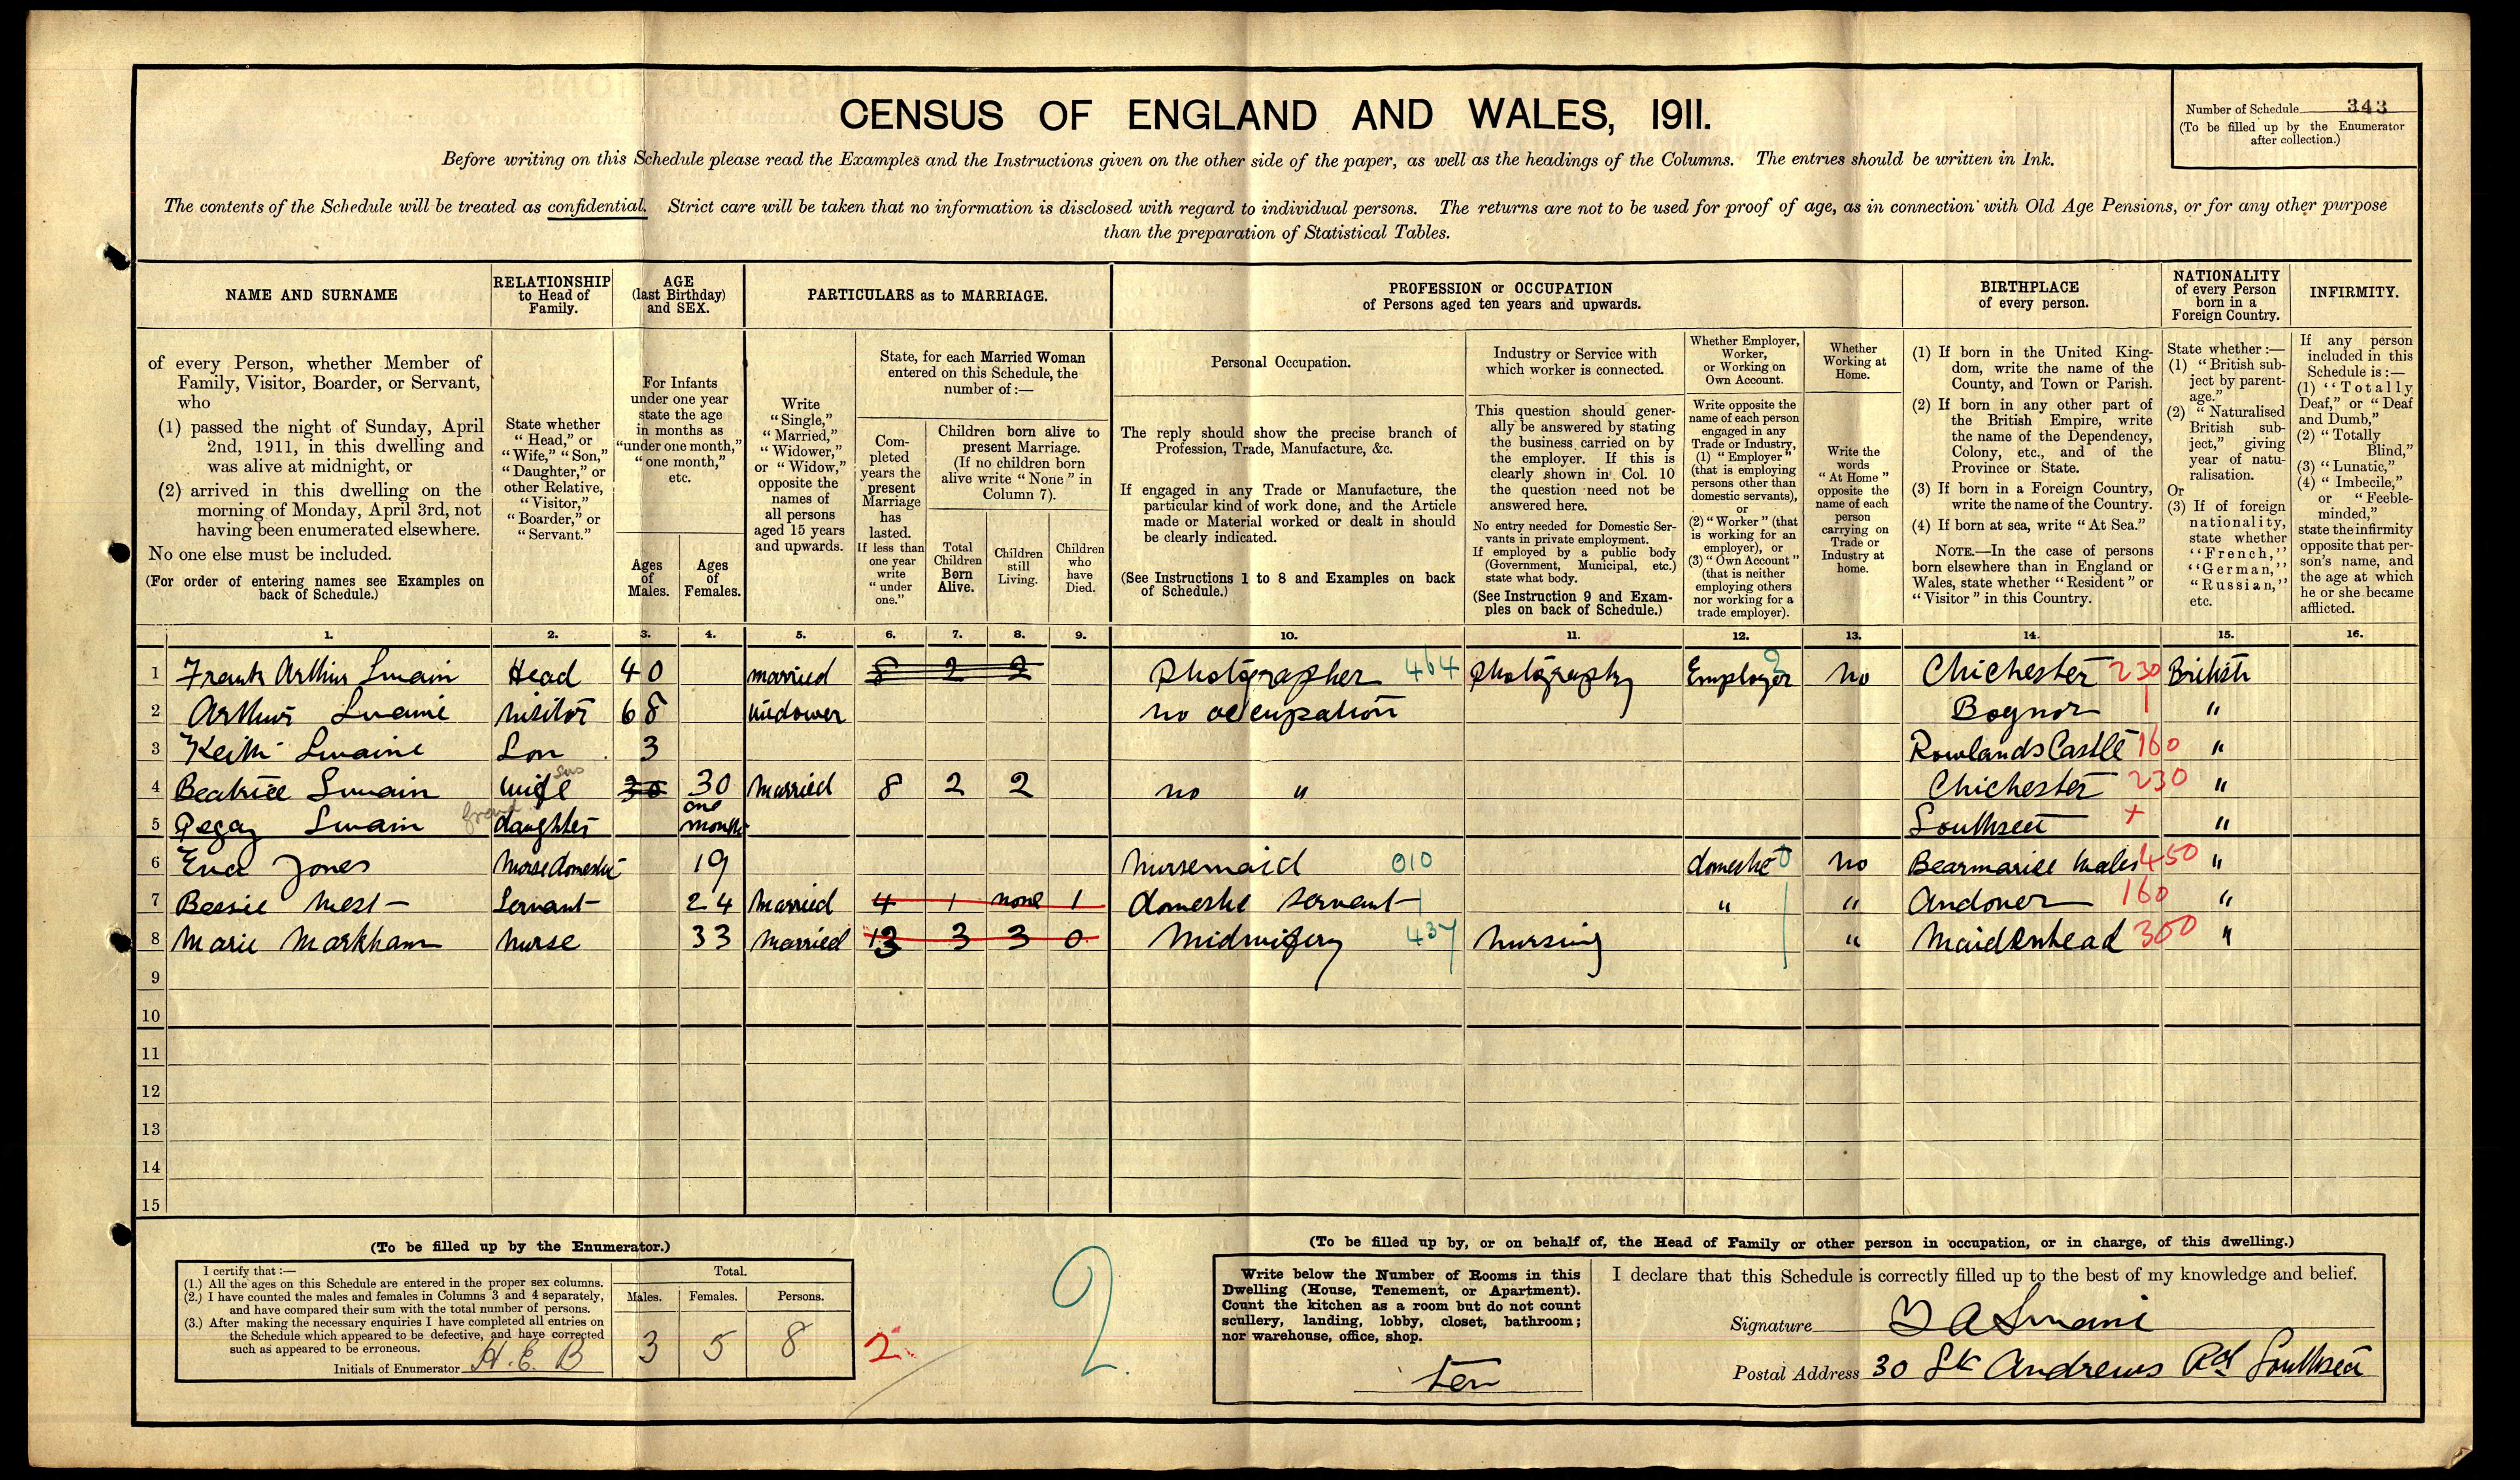 Number of Schedule 343
(To be filled up by the Enumerator
after collection.)
CENSUS OF ENGLAND AND WALES, 1911.
Before writing on this Schedule please read the Examples and the Instructions given on the other side of the paper, as well as the headings of the Columns. The entries should be written in Ink.
The contents of the Schedule will be treated as confidential. Strict care will be taken that no information is disclosed with regard to individual persons. The returns are not to be used for proof of age, as in connection with Old Age Pensions, or for any other purpose
than the preparation of Statistical Tables.
NAME AND SURNAME
of every Person, whether Member of
Family, Visitor, Boarder, or Servant,
who
(1) passed the night of Sunday, April
2nd, 1911, in this dwelling and
was alive at midnight, or
(2) arrived in this dwelling on the
morning of Monday, April 3rd, not
having been enumerated elsewhere.
No one else must be included.
(For order of entering names see Examples on
back of Schedule.)
RELATIONSHIP
to Head of
Family.
State whether
"Head," or
"Wife," "Son,"
"Daughter," or
other Relative,
"Visitor,"
"Boarder," or
"Servant."
AGE
(last Birthday)
and SEX.
For Infants
under one year
state the age
in months as
"under one month,"
"one month,"
etc.
Ages
of
Males.
Ages
of
Females.
PARTICULARS as to MARRIAGE.
Write
"Single,"
"Married,"
"Widower,"
or "Widow,"
opposite the
names of
all persons
aged 15 years
and upwards.
State, for each Married Woman
entered on this Schedule, the
number of:—
Com-
pleted
years the
present
Marriage
has
lasted.
If less than
one year
write
"under
one."
Children born alive to
present Marriage.
(If no children born
alive write "None" in
Column 7).
Total
Children
Born
Alive.
Children
still
Living.
Children
who
have
Died.
PROFESSION or OCCUPATION
of Persons aged ten years and upwards.
Personal Occupation.
The reply should show the precise branch of
Profession, Trade, Manufacture, &c.
If engaged in any Trade or Manufacture, the
particular kind of work done, and the Article
made or Material worked or dealt in should
be clearly indicated.
(See Instructions 1 to 8 and Examples on back
of Schedule.)
Industry or Service with
which worker is connected.
This question should gener-
ally be answered by stating
the business carried on by
the employer. If this is
clearly shown in Col. 10
the question need not be
answered here.
No entry needed for Domestic Ser-
vants in private employment.
If employed by a public body
(Government, Municipal, etc.)
state what body.
(See Instruction 9 and Exam-
ples on back of Schedule.)
Whether Employer,
Worker,
or Working on
Own Account.
Write opposite the
name of each person
engaged in any
Trade or Industry,
(1) "Employer"
(that is employing
persons other than
domestic servants),
or
(2) "Worker" (that
is working for an
employer), or
(3) "Own Account"
(that is neither
employing others
nor working for a
trade employer).
Whether
Working at
Home.
Write the
words
"At Home"
opposite the
name of each
person
carrying on
Trade or
Industry at
home.
BIRTHPLACE
of every person.
(1) If born in the United King-
dom, write the name of the
County, and Town or Parish.
(2) If born in any other part of
the British Empire, write
the name of the Dependency,
Colony, etc., and of the
Province or State.
(3) If born in a Foreign Country,
write the name of the Country.
(4) If born at sea, write "At Sea."
NOTE.—In the case of persons
born elsewhere than in England or
Wales, state whether "Resident" or
"Visitor" in this Country.
NATIONALITY
of every Person
born in a
Foreign Country.
State whether :—
(1) "British sub-
ject by parent-
age."
(2) "Naturalised
British sub-
ject," giving
year of natu-
ralisation.
Or
(3) If of foreign
nationality,
state whether
"French,"
"German,"
"Russian,"
etc.
INFIRMITY.
If any person
included in this
Schedule is :—
(1) "Totally
Deaf," or "Deaf
and Dumb,"
(2) "Totally
Blind,"
(3) "Lunatic,"
(4) "Imbecile,"
or "Feeble-
minded,"
state the infirmity
opposite that per-
son's name, and
the age at which
he or she became
afflicted.
1. 2. 3. 4. 5. 6. 7. 8. 9. 10. 11. 12. 13. 14. 15. 16.
1 Frank Arthur Swain Head 40 married 8 2 2 Photographer 464 Photography Employer 2 No Chichester 230 British
2 Arthur Swaine visitor 68 Widower no occupation Bognor "
3 Keith Swaine Son 3 Rowlands Castle 160 "
4 Beatrice Swain wife 30 30 Married 8 2 2 no " Chichester 230 "
5 Pegay Swain daughter one month Southsea + "
6 Eva Jones Nurse domestic 19 Nursemaid 010 domestic 0 No 450 "
7 Bessie West Servant 24 Married 4 1 none 1 domestic servant " " Andover 160 "
8 Marie Markham nurse 33 Married 13 3 3 0 Midwifery 437 Nursing " Maidenhead 300 "
9
10
11
12
13
14
15
(To be filled up by the Enumerator.)
I certify that :—
(1.) All the ages on this Schedule are entered in the proper sex columns.
(2.) I have counted the males and females in Columns 3 and 4 separately,
and have compared their sum with the total number of persons.
(3.) After making the necessary enquiries I have completed all entries on
the Schedule which appeared to be defective, and have corrected
such as appeared to be erroneous.
Initials of Enumerator H. E. B
Total.
Males. Females. Persons.
3 5 8
2
2
(To be filled up by, or on behalf of, the Head of Family or other person in occupation, or in charge, of this dwelling.)
Write below the Number of Rooms in this
Dwelling (House, Tenement, or Apartment).
Count the kitchen as a room but do not count
scullery, landing, lobby, closet, bathroom;
nor warehouse, office, shop.
ten
I declare that this Schedule is correctly filled up to the best of my knowledge and belief.
Signature F A Swaine
Postal Address 30 St Andrews Rd Southsea